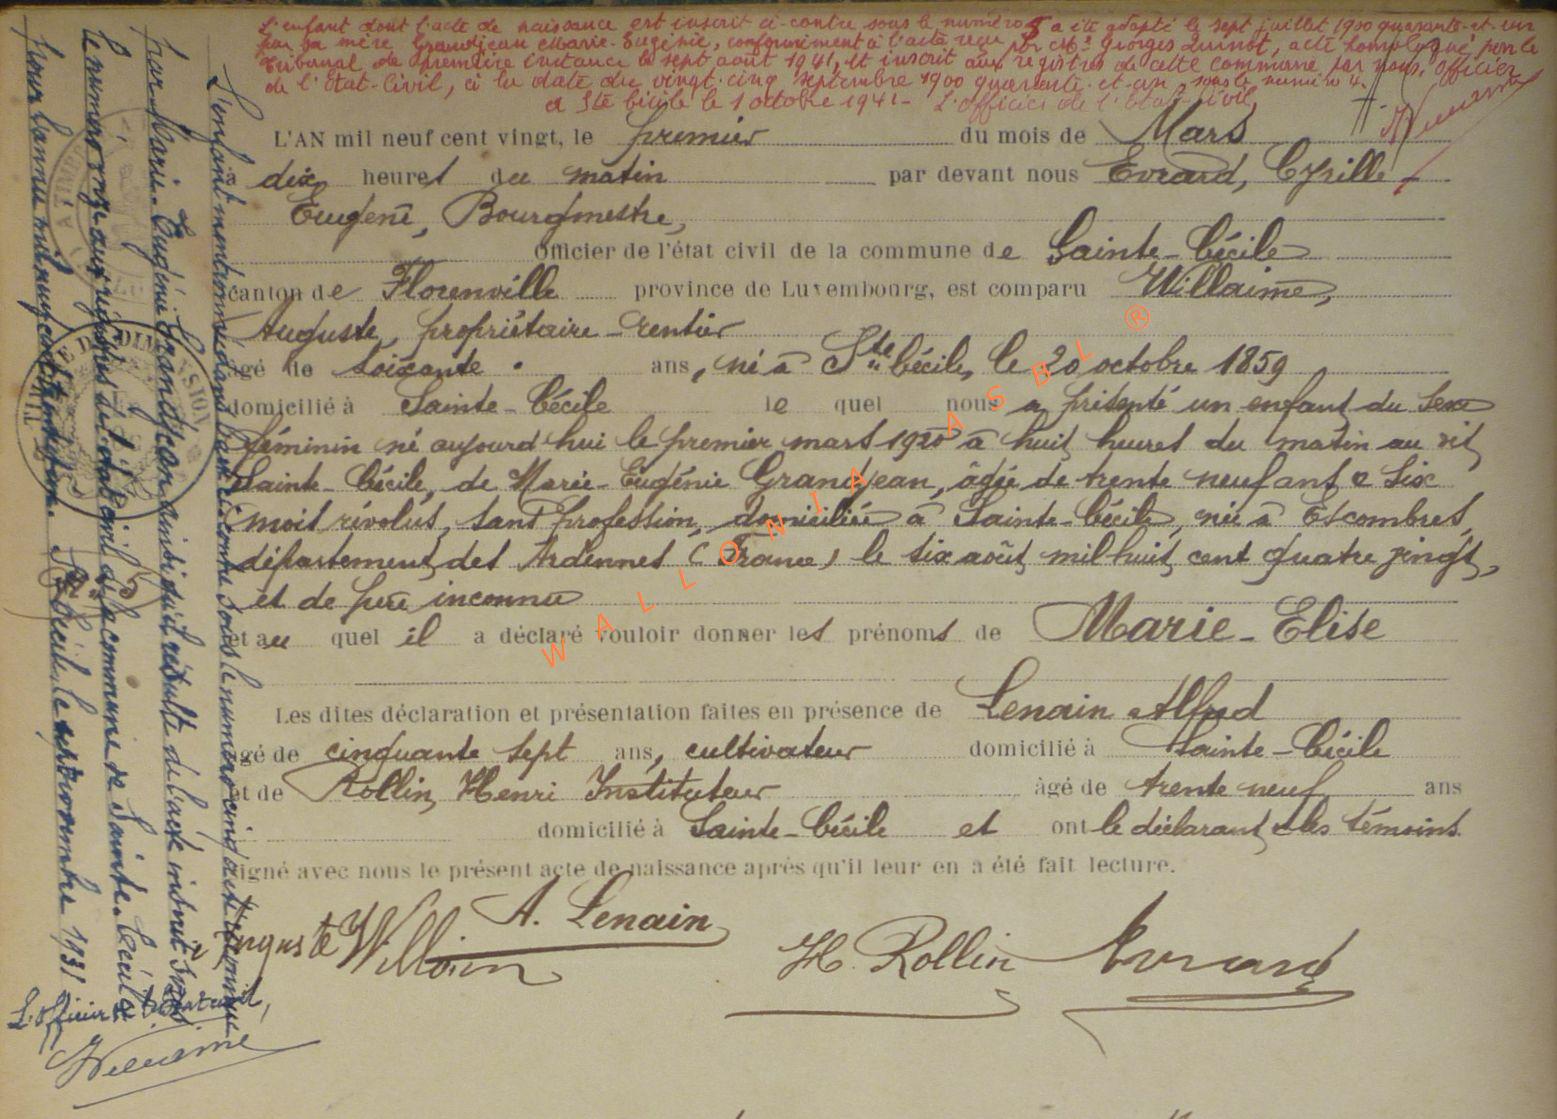 L'enfant dont l'acte de naissance est inscrit ci-contre sous le numéro 5 a été adopté le sept juillet 1900 quarante-et-un
par sa mère Grandjean Marie-Eugénie, conformément à l'acte reçu par Me Georges, acte homologué par le
tribunal de première instance le sept août 1941, et inscrit aux registres de cette commune par nous, officier
de l'Etat-Civil, à la date du vingt-cinq septembre 1900 quarante-et-un, sous le numéro 4.
A Ste Cécile le 1 octobre 1941 - L'officier de l'Etat-Civil,
L'AN mil neuf cent vingt, le premier du mois de Mars
à dix heures du matin par devant nous Evrard, Cyrille
Eugène, Bourgmestre,
Officier de l'état civil de la commune de Sainte-Cécile
canton de Florenville province de Luxembourg, est comparu Willaime,
Auguste, propriétaire-rentier
âgé de soixante ans, né à Ste Cécile, le 20 octobre 1859
domicilié à Sainte-Cécile le quel nous a présenté un enfant du sexe
féminin né aujourd'hui le premier mars 1920 à huit heures du matin au dit
Sainte-Cécile, de Marie-Eugénie Grandjean, âgée de trente neuf ans e six
mois révolus, sans profession, domiciliée à Sainte-Cécile, née à Escombres,
département des Ardennes (France) le six août mil huit cent quatre vingt,
et de père inconnu
et au quel il a déclaré vouloir donner les prénoms de Marie-Elise
Les dites déclaration et présentation faites en présence de Lenain Alfred
âgé de cinquante sept ans, cultivateur domicilié à Sainte-Cécile
et de Rollin, Henri Instituteur âgé de trente neuf ans
domicilié à Sainte-Cécile et ont le déclarant et les témoins
signé avec nous le présent acte de naissance après qu'il leur en a été fait lecture.
Auguste Willaim
A. Lenain
H. Rollin
Evrard
L'enfant mentionné dans l'acte ci-contre sous le numéro cinq a été reconnue
par Marie-Eugénie Grandjean ainsi qu'il résulte de l'acte inscrit sous
le numéro onze aux registres de l'état civil de la commune de Sainte-Cécile
pour l'année mil neuf cent trente et un. Ste Cécile le sept novembre 1931
L'officier de l'état civil,
WALLONIA ASBL ®